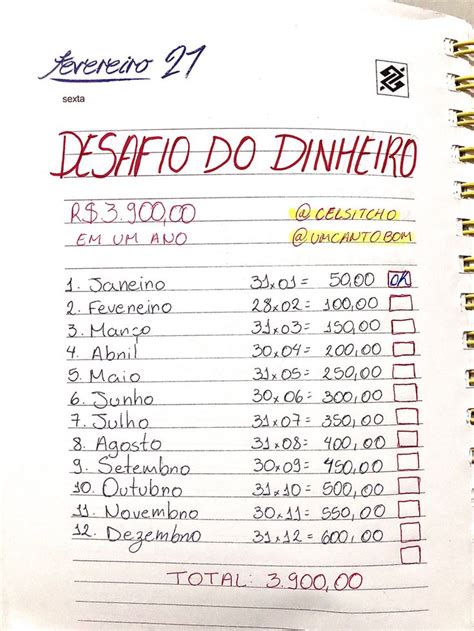 fevereiro 21
sexta
DESAFIO DO DINHEIRO
R$ 3.900,00 @CELSITCHO
EM UM ANO @UMCANTO.BOM
1. Janeiro 31×01 = 50,00 OK
2. Fevereiro 28×02 = 100,00
3. Março 31×03 = 150,00
4. Abril 30×04 = 200,00
5. Maio 31×05 = 250,00
6. Junho 30×06 = 300,00
7. Julho 31×07 = 350,00
8. Agosto 31×08 = 400,00
9. Setembro 30×09 = 450,00
10. Outubro 31×10 = 500,00
11. Novembro 30×11 = 550,00
12. Dezembro 31×12 = 600,00
TOTAL: 3.900,00